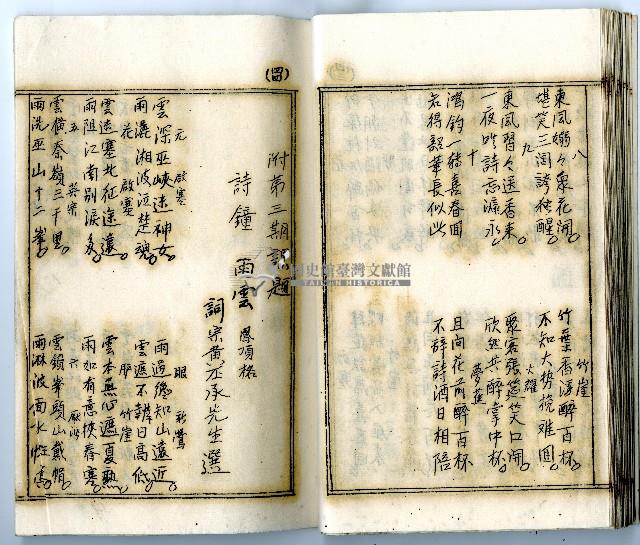 八
東風嫋々眾花開
堪笑三閭誇独醒
九
東風習々送香來
一夜吟詩忘漏永
十
鴻鈞一轉喜春回
若得韶華長似此
竹崖
竹葉香浮醉百杯
不知大势挽难回
火曜
聚客張筵笑口開
欣然共醉掌中杯
夢蕉
且向花前醉百杯
不辞詩酒日相陪
(四)
附第三期課題
詩鐘 雨雲 鳳頂格
詞宗黃丕承先生選
元 啟塞
雲深巫峽迷神女
雨濕湘波泣楚魂
花 啟塞
雲迷塞北征途遠
雨阻江南別淚多
五
雲橫秦嶺三千里
雨洗巫山十二峯
眼 新鶯
雨過德知山遠近
雲遮不辨日高低
竹崖
雲本無心遮夏熱
雨如有意挾春寒
六
雲鎖峯頭山戴帽
雨淋波面水
國史館臺灣文獻館
TAIWAN HISTORICA